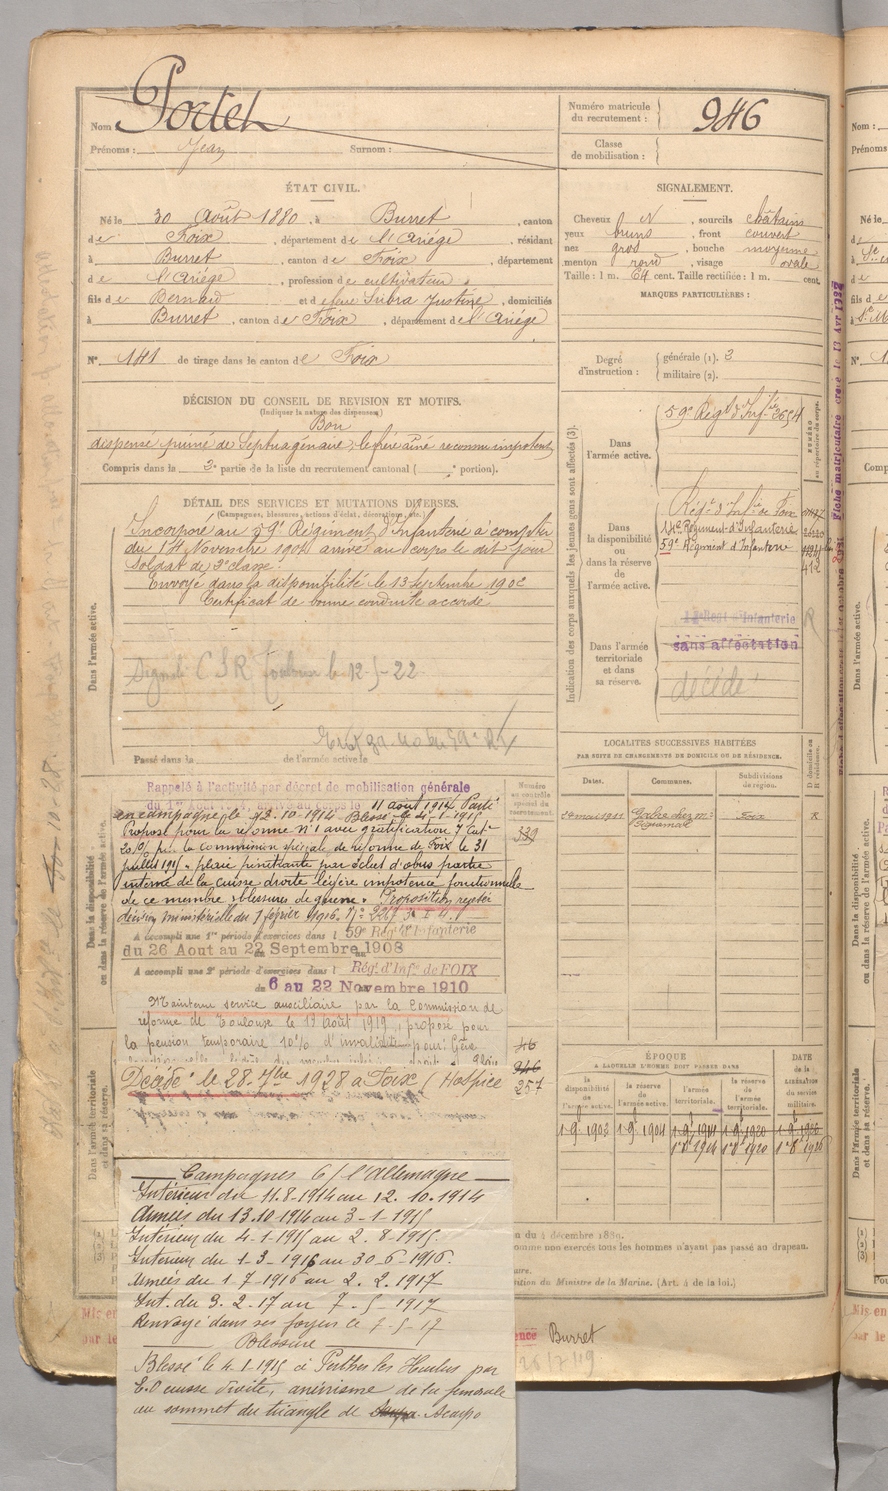 Nom Portet
Prénoms : Jean Surnom :
Numéro matricule du recrutement : 946
Classe de mobilisation :
ÉTAT CIVIL.
Né le 30 Août 1880, à Burret, canton
de Foix, département de l'Ariége, résidant
à Burret, canton de Foix, département
de l'Ariége, profession de cultivateur
fils de Bernard et de feue Subra Justine, domiciliés
à Burret, canton de Foix, département de l'Ariége
N° 141 de tirage dans le canton de Foix
SIGNALEMENT.
Cheveux N, sourcils châtains
yeux bruns, front couvert
nez gros, bouche moyenne
menton rond, visage ovale
Taille : 1 m. 64 cent. Taille rectifiée : 1 m. cent.
MARQUES PARTICULIÈRES :
Degré d'instruction : générale (1). 3
militaire (2).
DÉCISION DU CONSEIL DE REVISION ET MOTIFS.
(Indiquer la nature des dispenses)
Bon
dispensé puiné de Septuagénaire, le frère aîné reconnu impotent
Compris dans la 2e partie de la liste du recrutement cantonal ( e portion).
DÉTAIL DES SERVICES ET MUTATIONS DIVERSES.
(Campagnes, blessures, actions d'éclat, décorations, etc.)
Dans l'armée active.
Incorporé au 59e Régiment d'Infanterie à compter
du 14 Novembre 1901 arrivé au corps le dit jour
Soldat de 2e classe.
Envoyé dans la disponibilité le 13 Septembre 1902
Certificat de bonne conduite accordé
Signalé CSR Toulouse le 12-5-22
Passé dans la de l'armée active le
Indication des corps auxquels les jeunes gens sont affectés (3).
Dans l'armée active.
59e Régt d'Infie 3654
NUMÉRO au répertoire du corps.
Dans la disponibilité ou dans la réserve de l'armée active.
Régt d'Infie de Foix
14e Régiment d'Infanterie
59e Régiment d'Infanterie
Dans l'armée territoriale et dans sa réserve.
sans affectation
décédé
LOCALITÉS SUCCESSIVES HABITÉES
PAR SUITE DE CHANGEMENTS DE DOMICILE OU DE RÉSIDENCE.
Dates. Communes. Subdivisions de région. D domicile ou R résidence.
24 mai 1911 chez Mr Foix R
Dans la disponibilité ou dans la réserve de l'armée active.
Rappelé à l'activité par décret de mobilisation générale
du 1er Août 1914, arrivé au corps le 11 août 1914. Parti
en campagne le 13.10-1914 Blessé le 4-1-1915
Proposé pour la réforme n°1 avec gratification 7 Cat.
20% par la commission spéciale de réforme de Foix le 31
juillet 1915. plaie pénétrante par éclat d'obus partie
interne de la cuisse droite légère impotence fonctionnelle
de ce membre. blessures de guerre. Proposition rejetée
décision ministérielle du 7 février 1916. N° 2267
Numéro au contrôle spécial du recrutement.
539
A accompli une 1re période d'exercices dans l 59e Régt d'Infanterie
du 26 Aout au 22 Septembre 1908
A accompli une 2e période d'exercices dans l Régt d'Infie de FOIX
du 6 au 22 Novembre 1910
Maintenu service auxiliaire par la Commission de
réforme de Toulouse le 13 août 1919, proposé pour
la pension temporaire 10% d'invalidité pour: Gêne
Décédé le 28. 7bre 1928 à Foix (Hospice
46
946
257
Dans l'armée territoriale et dans sa réserve.
ÉPOQUE
A LAQUELLE L'HOMME DOIT PASSER DANS
la disponibilité de l'armée active. la réserve de l'armée active. l'armée territoriale. la réserve de l'armée territoriale.
DATE de la LIBÉRATION du service militaire.
1-9-1902 1-9-1904 1-9-1914 1-9-1920 1-9-1926
Campagnes C/ l'Allemagne
Intérieur du 11.8-1914 au 12.10.1914
Armées du 13.10 1914 au 3-1-1915
Intérieur du 4-1-1915 au 2.8-1915.
Intérieur du 1-3-1916 au 30-6-1916.
Armées du 1-7-1916 au 2.2.1917
Int. du 3.2.17 au 7-5-1917
Renvoyé dans ses foyers le 7-5-17
Blessure
Blessé le 4.1-1915 à Perthes les Hurlus par
E.O cuisse droite, anévrisme de la fémorale
au sommet du triangle de Scarpa
du 4 décembre 1889.
comme non exercés tous les hommes n'ayant pas passé au drapeau.
du Ministre de la Marine. (Art. 4 de la loi.)
Burret